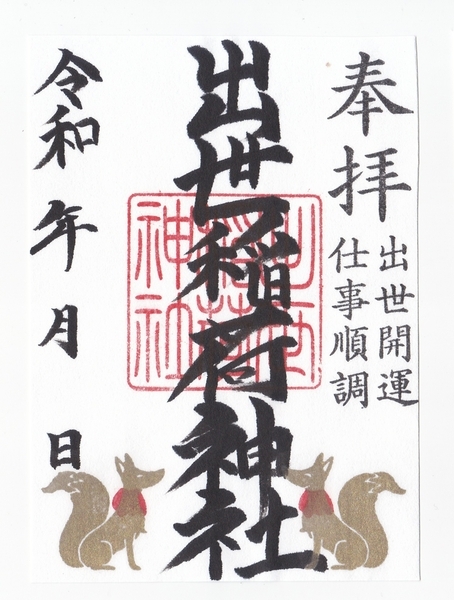 奉拝
出世開運
仕事順調
出世稲荷神社
出世稲荷神社
令和 年 月 日